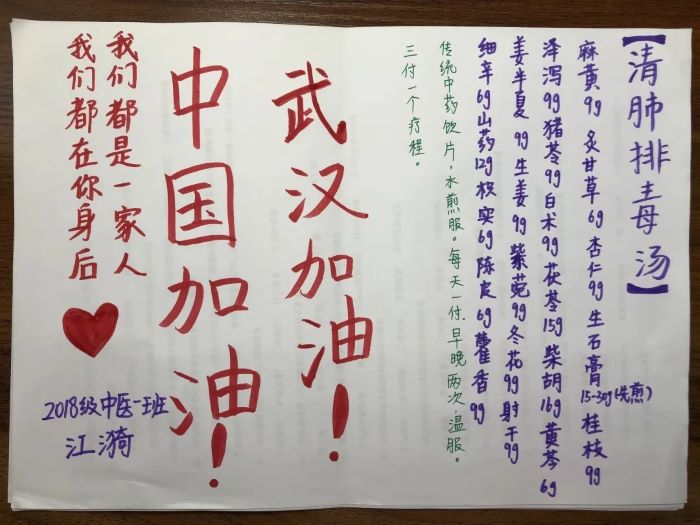 【清肺排毒汤】
麻黄9g 炙甘草6g 杏仁9g 生石膏15-30g(先煎) 桂枝9g
泽泻9g 猪苓9g 白术9g 茯苓15g 柴胡16g 黄芩6g
姜半夏9g 生姜9g 紫菀9g 冬花9g 射干9g
细辛6g 山药12g 枳实6g 陈皮6g 藿香9g
传统中药饮片，水煎服。每天一付，早晚两次，温服。
三付一个疗程。
武汉加油！
中国加油！
我们都是一家人
我们都在你身后
2018级中医一班
江漪